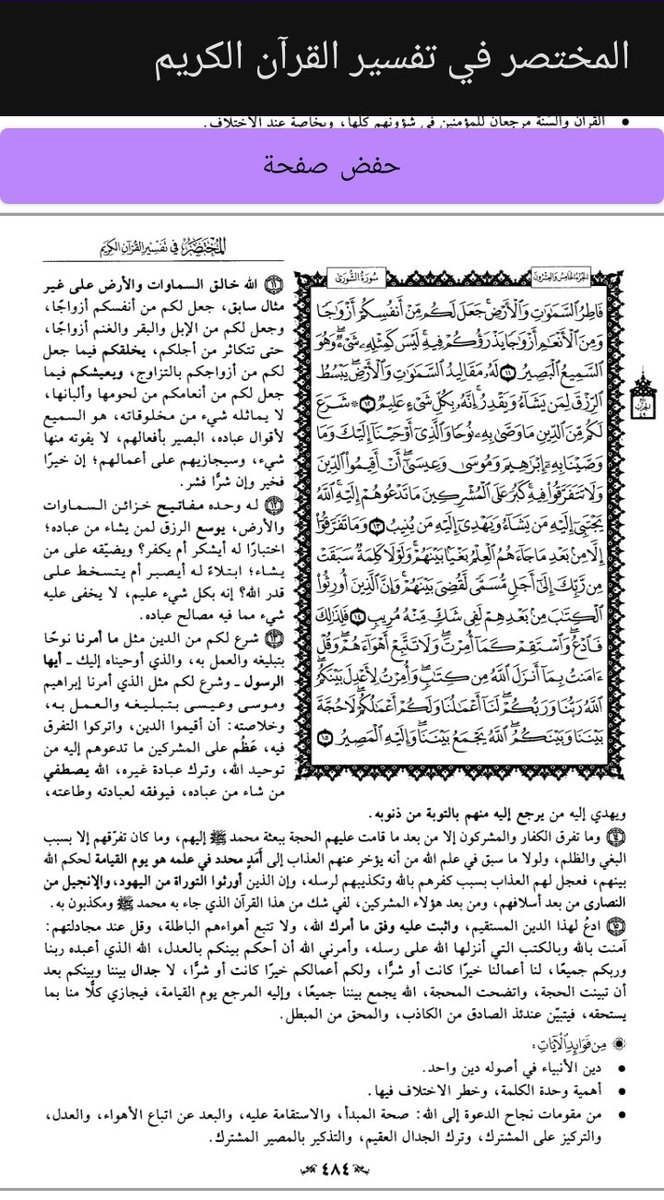 المختصر في تفسير القرآن الكريم
القرآن والسُّنة مرجعان للمؤمنين في شؤونهم كلها، وبخاصة عند الاختلاف.
حفض صفحة
المُخْتَصَرُ في تَفْسِيرِ القُرْآنِ الكَرِيمِ
الجزء الخامس والعشرون
سُورَةُ الشُّورَىٰ
فَاطِرُ ٱلسَّمَٰوَٰتِ وَٱلْأَرْضِۚ جَعَلَ لَكُم مِّنْ أَنفُسِكُمْ أَزْوَٰجًا
وَمِنَ ٱلْأَنْعَٰمِ أَزْوَٰجًا يَذْرَؤُكُمْ فِيهِۚ لَيْسَ كَمِثْلِهِۦ شَىْءٌۖ وَهُوَ
ٱلسَّمِيعُ ٱلْبَصِيرُ ١١ لَهُۥ مَقَالِيدُ ٱلسَّمَٰوَٰتِ وَٱلْأَرْضِۖ يَبْسُطُ
ٱلرِّزْقَ لِمَن يَشَآءُ وَيَقْدِرُۚ إِنَّهُۥ بِكُلِّ شَىْءٍ عَلِيمٌ ١٢ ۞ شَرَعَ
لَكُم مِّنَ ٱلدِّينِ مَا وَصَّىٰ بِهِۦ نُوحًا وَٱلَّذِىٓ أَوْحَيْنَآ إِلَيْكَ وَمَا
وَصَّيْنَا بِهِۦٓ إِبْرَٰهِيمَ وَمُوسَىٰ وَعِيسَىٰٓۖ أَنْ أَقِيمُوا۟ ٱلدِّينَ
وَلَا تَتَفَرَّقُوا۟ فِيهِۚ كَبُرَ عَلَى ٱلْمُشْرِكِينَ مَا تَدْعُوهُمْ إِلَيْهِۚ ٱللَّهُ
يَجْتَبِىٓ إِلَيْهِ مَن يَشَآءُ وَيَهْدِىٓ إِلَيْهِ مَن يُنِيبُ ١٣ وَمَا تَفَرَّقُوٓا۟
إِلَّا مِنۢ بَعْدِ مَا جَآءَهُمُ ٱلْعِلْمُ بَغْيًۢا بَيْنَهُمْۚ وَلَوْلَا كَلِمَةٌ سَبَقَتْ
مِن رَّبِّكَ إِلَىٰٓ أَجَلٍ مُّسَمًّى لَّقُضِىَ بَيْنَهُمْۚ وَإِنَّ ٱلَّذِينَ أُورِثُوا۟
ٱلْكِتَٰبَ مِنۢ بَعْدِهِمْ لَفِى شَكٍّ مِّنْهُ مُرِيبٍ ١٤ فَلِذَٰلِكَ
فَٱدْعُۖ وَٱسْتَقِمْ كَمَآ أُمِرْتَۖ وَلَا تَتَّبِعْ أَهْوَآءَهُمْۖ وَقُلْ
ءَامَنتُ بِمَآ أَنزَلَ ٱللَّهُ مِن كِتَٰبٍۖ وَأُمِرْتُ لِأَعْدِلَ بَيْنَكُمُۖ
ٱللَّهُ رَبُّنَا وَرَبُّكُمْۖ لَنَآ أَعْمَٰلُنَا وَلَكُمْ أَعْمَٰلُكُمْۖ لَا حُجَّةَ
بَيْنَنَا وَبَيْنَكُمُۖ ٱللَّهُ يَجْمَعُ بَيْنَنَاۖ وَإِلَيْهِ ٱلْمَصِيرُ ١٥
١١ الله خالق السماوات والأرض على غير
مثال سابق، جعل لكم من أنفسكم أزواجًا،
وجعل لكم من الإبل والبقر والغنم أزواجًا،
حتى تتكاثر من أجلكم، يخلقكم فيما جعل
لكم من أزواجكم بالتزاوج، ويعيشكم فيما
جعل لكم من أنعامكم من لحومها وألبانها،
لا يماثله شيء من مخلوقاته، هو السميع
لأقوال عباده، البصير بأفعالهم، لا يفوته منها
شيء، وسيجازيهم على أعمالهم؛ إن خيرًا
فخير وإن شرًّا فشر.
١٢ له وحده مفاتيح خزائن السماوات
والأرض، يوسع الرزق لمن يشاء من عباده؛
اختبارًا له أيشكر أم يكفر؟ ويضيّقه على من
يشاء؛ ابتلاءً له أيصبر أم يتسخط على
قدر الله؟ إنه بكل شيء عليم، لا يخفى عليه
شيء مما فيه مصالح عباده.
١٣ شرع لكم من الدين مثل ما أمرنا نوحًا
بتبليغه والعمل به، والذي أوحيناه إليك ـ أيها
الرسول ـ وشرع لكم مثل الذي أمرنا إبراهيم
وموسى وعيسى بتبليغه والعمل به،
وخلاصته: أن أقيموا الدين، واتركوا التفرق
فيه، عَظُم على المشركين ما تدعوهم إليه من
توحيد الله، وترك عبادة غيره، الله يصطفي
من شاء من عباده، فيوفقه لعبادته وطاعته،
ويهدي إليه من يرجع إليه منهم بالتوبة من ذنوبه.
١٤ وما تفرق الكفار والمشركون إلا من بعد ما قامت عليهم الحجة ببعثة محمد ﷺ إليهم، وما كان تفرّقهم إلا بسبب
البغي والظلم، ولولا ما سبق في علم الله من أنه يؤخر عنهم العذاب إلى أَمَدٍ محدد في علمه هو يوم القيامة لحكم الله
بينهم، فعجل لهم العذاب بسبب كفرهم بالله وتكذيبهم لرسله، وإن الذين أورثوا التوراة من اليهود، والإنجيل من
النصارى من بعد أسلافهم، ومن بعد هؤلاء المشركين، لفي شك من هذا القرآن الذي جاء به محمد ﷺ ومكذبون به.
١٥ ادعُ لهذا الدين المستقيم، واثبت عليه وفق ما أمرك الله، ولا تتبع أهواءهم الباطلة، وقل عند مجادلتهم:
آمنت بالله وبالكتب التي أنزلها الله على رسله، وأمرني الله أن أحكم بينكم بالعدل، الله الذي أعبده ربنا
وربكم جميعًا، لنا أعمالنا خيرًا كانت أو شرًّا، ولكم أعمالكم خيرًا كانت أو شرًّا، لا جدال بيننا وبينكم بعد
أن تبينت الحجة، واتضحت المحجة، الله يجمع بيننا جميعًا، وإليه المرجع يوم القيامة، فيجازي كلًّا منا بما
يستحقه، فيتبيّن عندئذ الصادق من الكاذب، والمحق من المبطل.
مِن فَوَائِدِ الآيَاتِ:
• دين الأنبياء في أصوله دين واحد.
• أهمية وحدة الكلمة، وخطر الاختلاف فيها.
• من مقومات نجاح الدعوة إلى الله: صحة المبدأ، والاستقامة عليه، والبعد عن اتباع الأهواء، والعدل،
والتركيز على المشترك، وترك الجدال العقيم، والتذكير بالمصير المشترك.
٤٨٤